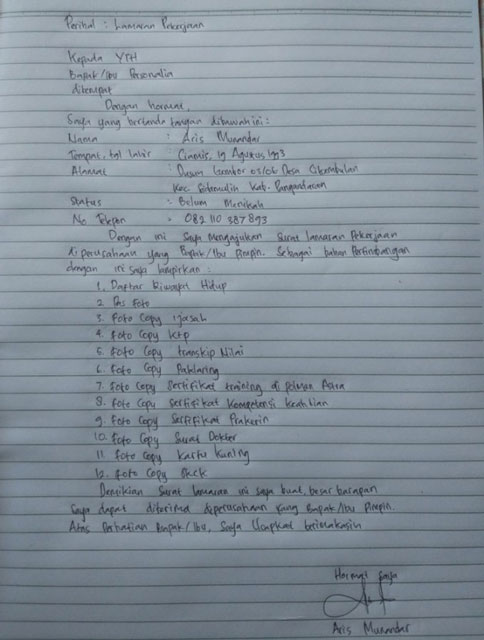 Perihal : Lamaran Pekerjaan
Kepada YTH
Bapak/Ibu Personalia
ditempat
Dengan hormat,
Saya yang bertanda tangan dibawah ini :
Nama : Aris Munandar
Tempat, tgl lahir : Ciamis, 19 Agustus 1993
Alamat : Dusun 05/06 Desa
Kec. Kab. Pangandaran
Status : Belum Menikah
No Telepon : 082 110 387 893
Dengan ini Saya Mengajukan Surat lamaran Pekerjaan
di perusahaan yang Bapak/Ibu Pimpin. Sebagai bahan Pertimbangan
dengan ini saya lampirkan :
1. Daftar Riwayat Hidup
2. Pas Foto
3. Foto Copy ijasah
4. Foto Copy Ktp
5. Foto Copy transkip Nilai
6. Foto Copy Paklaring
7. Foto Copy Sertifikat training di Polman Astra
8. Foto Copy Sertifikat Kompetensi keahlian
9. Foto Copy Sertifikat Prakerin
10. Foto Copy Surat Dokter
11. Foto Copy Kartu kuning
12. Foto Copy Skck
Demikian Surat lamaran ini saya buat, besar harapan
Saya dapat diterima diperusahaan yang Bapak/Ibu Pimpin.
Atas Perhatian Bapak/Ibu, Saya Ucapkan terimakasih
Hormat Saya
Aris Munandar